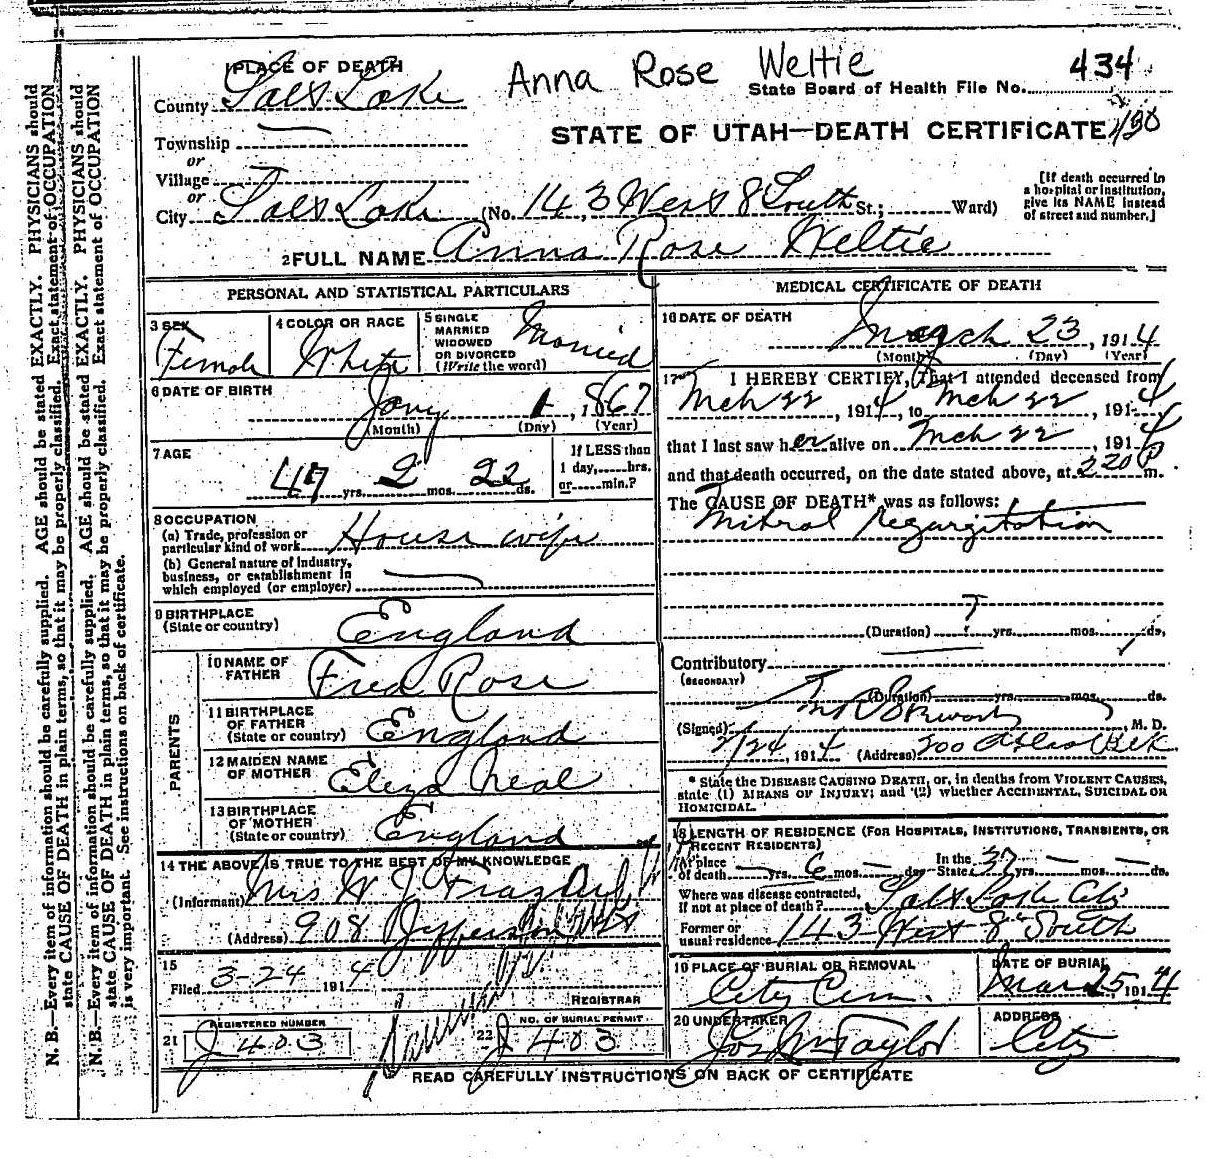 Anna Rose Weltie
434
PLACE OF DEATH
State Board of Health File No.
County Salt Lake
STATE OF UTAH—DEATH CERTIFICATE
Township
or
Village
or
City Salt Lake (No. 143 West 8 South St.; Ward)
[If death occurred in a hospital or institution, give its NAME instead of street and number.]
2 FULL NAME Anna Rose Weltie
PERSONAL AND STATISTICAL PARTICULARS
3 SEX Female
4 COLOR OR RACE White
5 SINGLE MARRIED WIDOWED OR DIVORCED (Write the word) Married
6 DATE OF BIRTH Jany 1, 1867
(Month) (Day) (Year)
7 AGE 47 yrs. 2 mos. 22 ds.
If LESS than 1 day, hrs. or min.?
8 OCCUPATION
(a) Trade, profession or particular kind of work House wife
(b) General nature of industry, business, or establishment in which employed (or employer)
9 BIRTHPLACE (State or country) England
PARENTS
10 NAME OF FATHER Fred Rose
11 BIRTHPLACE OF FATHER (State or country) England
12 MAIDEN NAME OF MOTHER Eliza Neal
13 BIRTHPLACE OF MOTHER (State or country) England
14 THE ABOVE IS TRUE TO THE BEST OF MY KNOWLEDGE
(Informant) Mrs W J
(Address) 908 Jefferson
15
Filed 3-24 1914
REGISTRAR
21 REGISTERED NUMBER J 403
22 NO. OF BURIAL PERMIT J 403
MEDICAL CERTIFICATE OF DEATH
16 DATE OF DEATH
March 23, 1914
(Month) (Day) (Year)
17 I HEREBY CERTIFY, That I attended deceased from
Mch 22, 1914, to Mch 22, 1914,
that I last saw her alive on Mch 22, 1914,
and that death occurred, on the date stated above, at 2 20 P m.
The CAUSE OF DEATH* was as follows:
Mitral Regurgitation
(Duration) ? yrs. mos. ds.
Contributory
(SECONDARY)
(Duration) yrs. mos. ds.
(Signed) M. D.
1914 (Address) 200 Atlas Blk
* State the DISEASE CAUSING DEATH, or, in deaths from VIOLENT CAUSES, state (1) MEANS OF INJURY; and (2) whether ACCIDENTAL, SUICIDAL OR HOMICIDAL.
18 LENGTH OF RESIDENCE (FOR HOSPITALS, INSTITUTIONS, TRANSIENTS, OR RECENT RESIDENTS)
At place of death — yrs. 6 mos. — ds. In the State 37 yrs. — mos. — ds.
Where was disease contracted, if not at place of death? Salt Lake City
Former or usual residence 143 West 8" South
19 PLACE OF BURIAL OR REMOVAL City Cem.
DATE OF BURIAL Mar 25, 1914
20 UNDERTAKER Jos Wm Taylor
ADDRESS City
READ CAREFULLY INSTRUCTIONS ON BACK OF CERTIFICATE
N. B.—Every item of information should be carefully supplied. AGE should be stated EXACTLY. PHYSICIANS should
state CAUSE OF DEATH in plain terms, so that it may be properly classified. Exact statement of OCCUPATION
N. B.—Every item of information should be carefully supplied. AGE should be stated EXACTLY. PHYSICIANS should
state CAUSE OF DEATH in plain terms, so that it may be properly classified. Exact statement of OCCUPATION
is very important. See instructions on back of certificate.